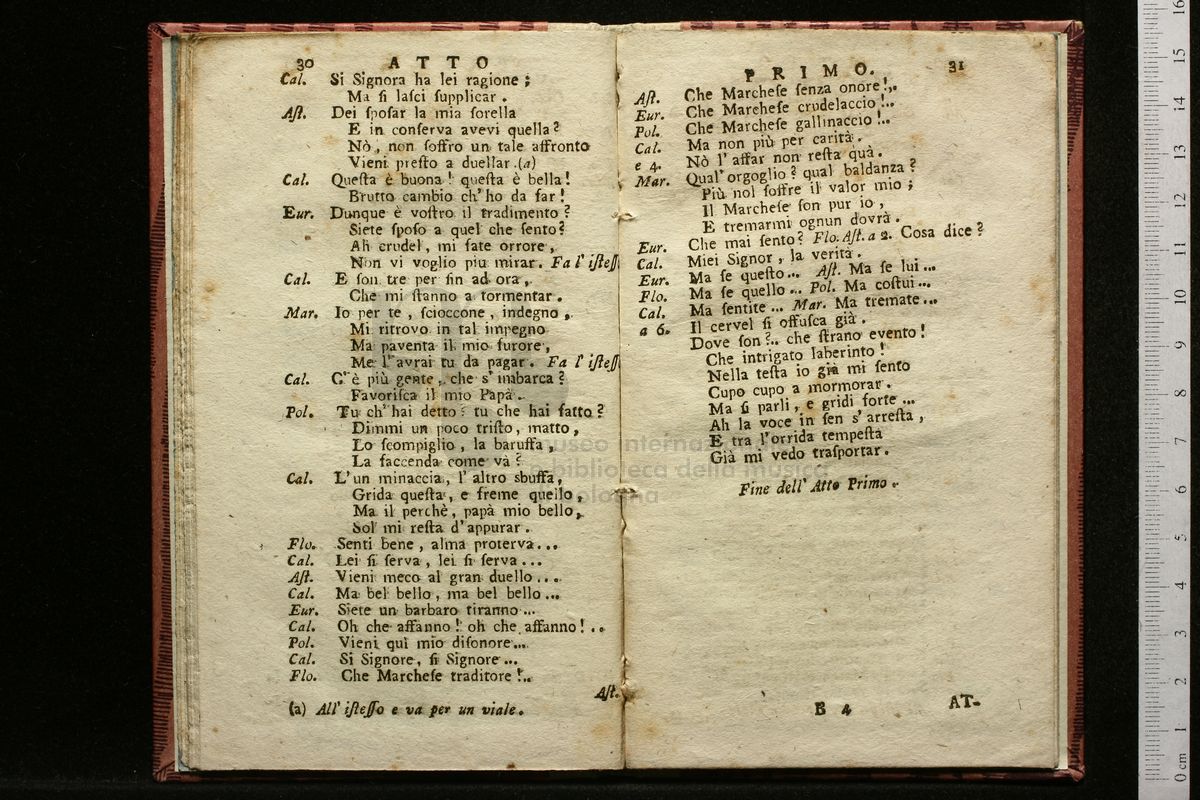 30 ATTO
Cal. Si Signora ha lei ragione;
Ma ſi laſci ſupplicar.
Aſt. Dei ſpoſar la mia ſorella
E in conſerva avevi quella?
Nò, non ſoffro un tale affronto
Vieni preſto a duellar.(a)
Cal. Queſta è buona! queſta è bella!
Brutto cambio ch'ho da far!
Eur. Dunque è voſtro il tradimento?
Siete ſpoſo a quel che ſento?
Ah crudel, mi fate orrore,
Non vi voglio piu mirar. Fa l'iſteſſ
Cal. E ſon tre per fin ad ora,
Che mi ſtanno a tormentar.
Mar. Io per te, ſcioccone, indegno,
Mi ritrovo in tal impegno
Ma paventa il mio furore,
Me l'avrai tu da pagar. Fa l'iſteſſ
Cal. C'è più gente, che s'imbarca?
Favoriſca il mio Papà.
Pol. Tu ch'hai detto? tu che hai fatto?
Dimmi un poco triſto, matto,
Lo ſcompiglio, la baruffa,
La faccenda come và?
Cal. L'un minaccia, l'altro sbuffa,
Grida queſta, e freme quello,
Ma il perchè, papà mio bello,
Sol mi reſta d'appurar.
Flo. Senti bene, alma proterva...
Cal. Lei ſi ſerva, lei ſi ſerva...
Aſt. Vieni meco al gran duello....
Cal. Ma bel bello, ma bel bello...
Eur. Siete un barbaro tiranno...
Cal. Oh che affanno! oh che affanno!..
Pol. Vieni quì mio diſonore...
Cal. Si Signore, ſi Signore...
Flo. Che Marcheſe traditore!..
Aſt.
(a) All'iſteſſo e va per un viale.
PRIMO. 31
Aſt. Che Marcheſe ſenza onore!..
Eur. Che Marcheſe crudelaccio!..
Pol. Che Marcheſe gallinaccio!..
Cal. Ma non più per carità.
e 4. Nò l'affar non reſta quà.
Mar. Qual'orgoglio? qual baldanza?
Più nol ſoffre il valor mio;
Il Marcheſe ſon pur io,
E tremarmi ognun dovrà.
Eur. Che mai ſento? Flo. Aſt. a 2. Coſa dice?
Cal. Miei Signor, la verità.
Eur. Ma ſe queſto... Aſt. Ma ſe lui...
Flo. Ma ſe quello... Pol. Ma coſtui...
Cal. Ma ſentite... Mar. Ma tremate...
a 6. Il cervel ſi offuſca già.
Dove ſon?.. che ſtrano evento!
Che intrigato laberinto!
Nella teſta io già mi ſento
Cupo cupo a mormorar.
Ma ſi parli, e gridi forte...
Ah la voce in ſen s'arreſta,
E tra l'orrida tempeſta
Già mi vedo traſportar.
Fine dell'Atto Primo.
B 4 AT-
museo internaz
biblioteca della musica
bologna
0 cm 1 2 3 4 5 6 7 8 9 10 11 12 13 14 15 16